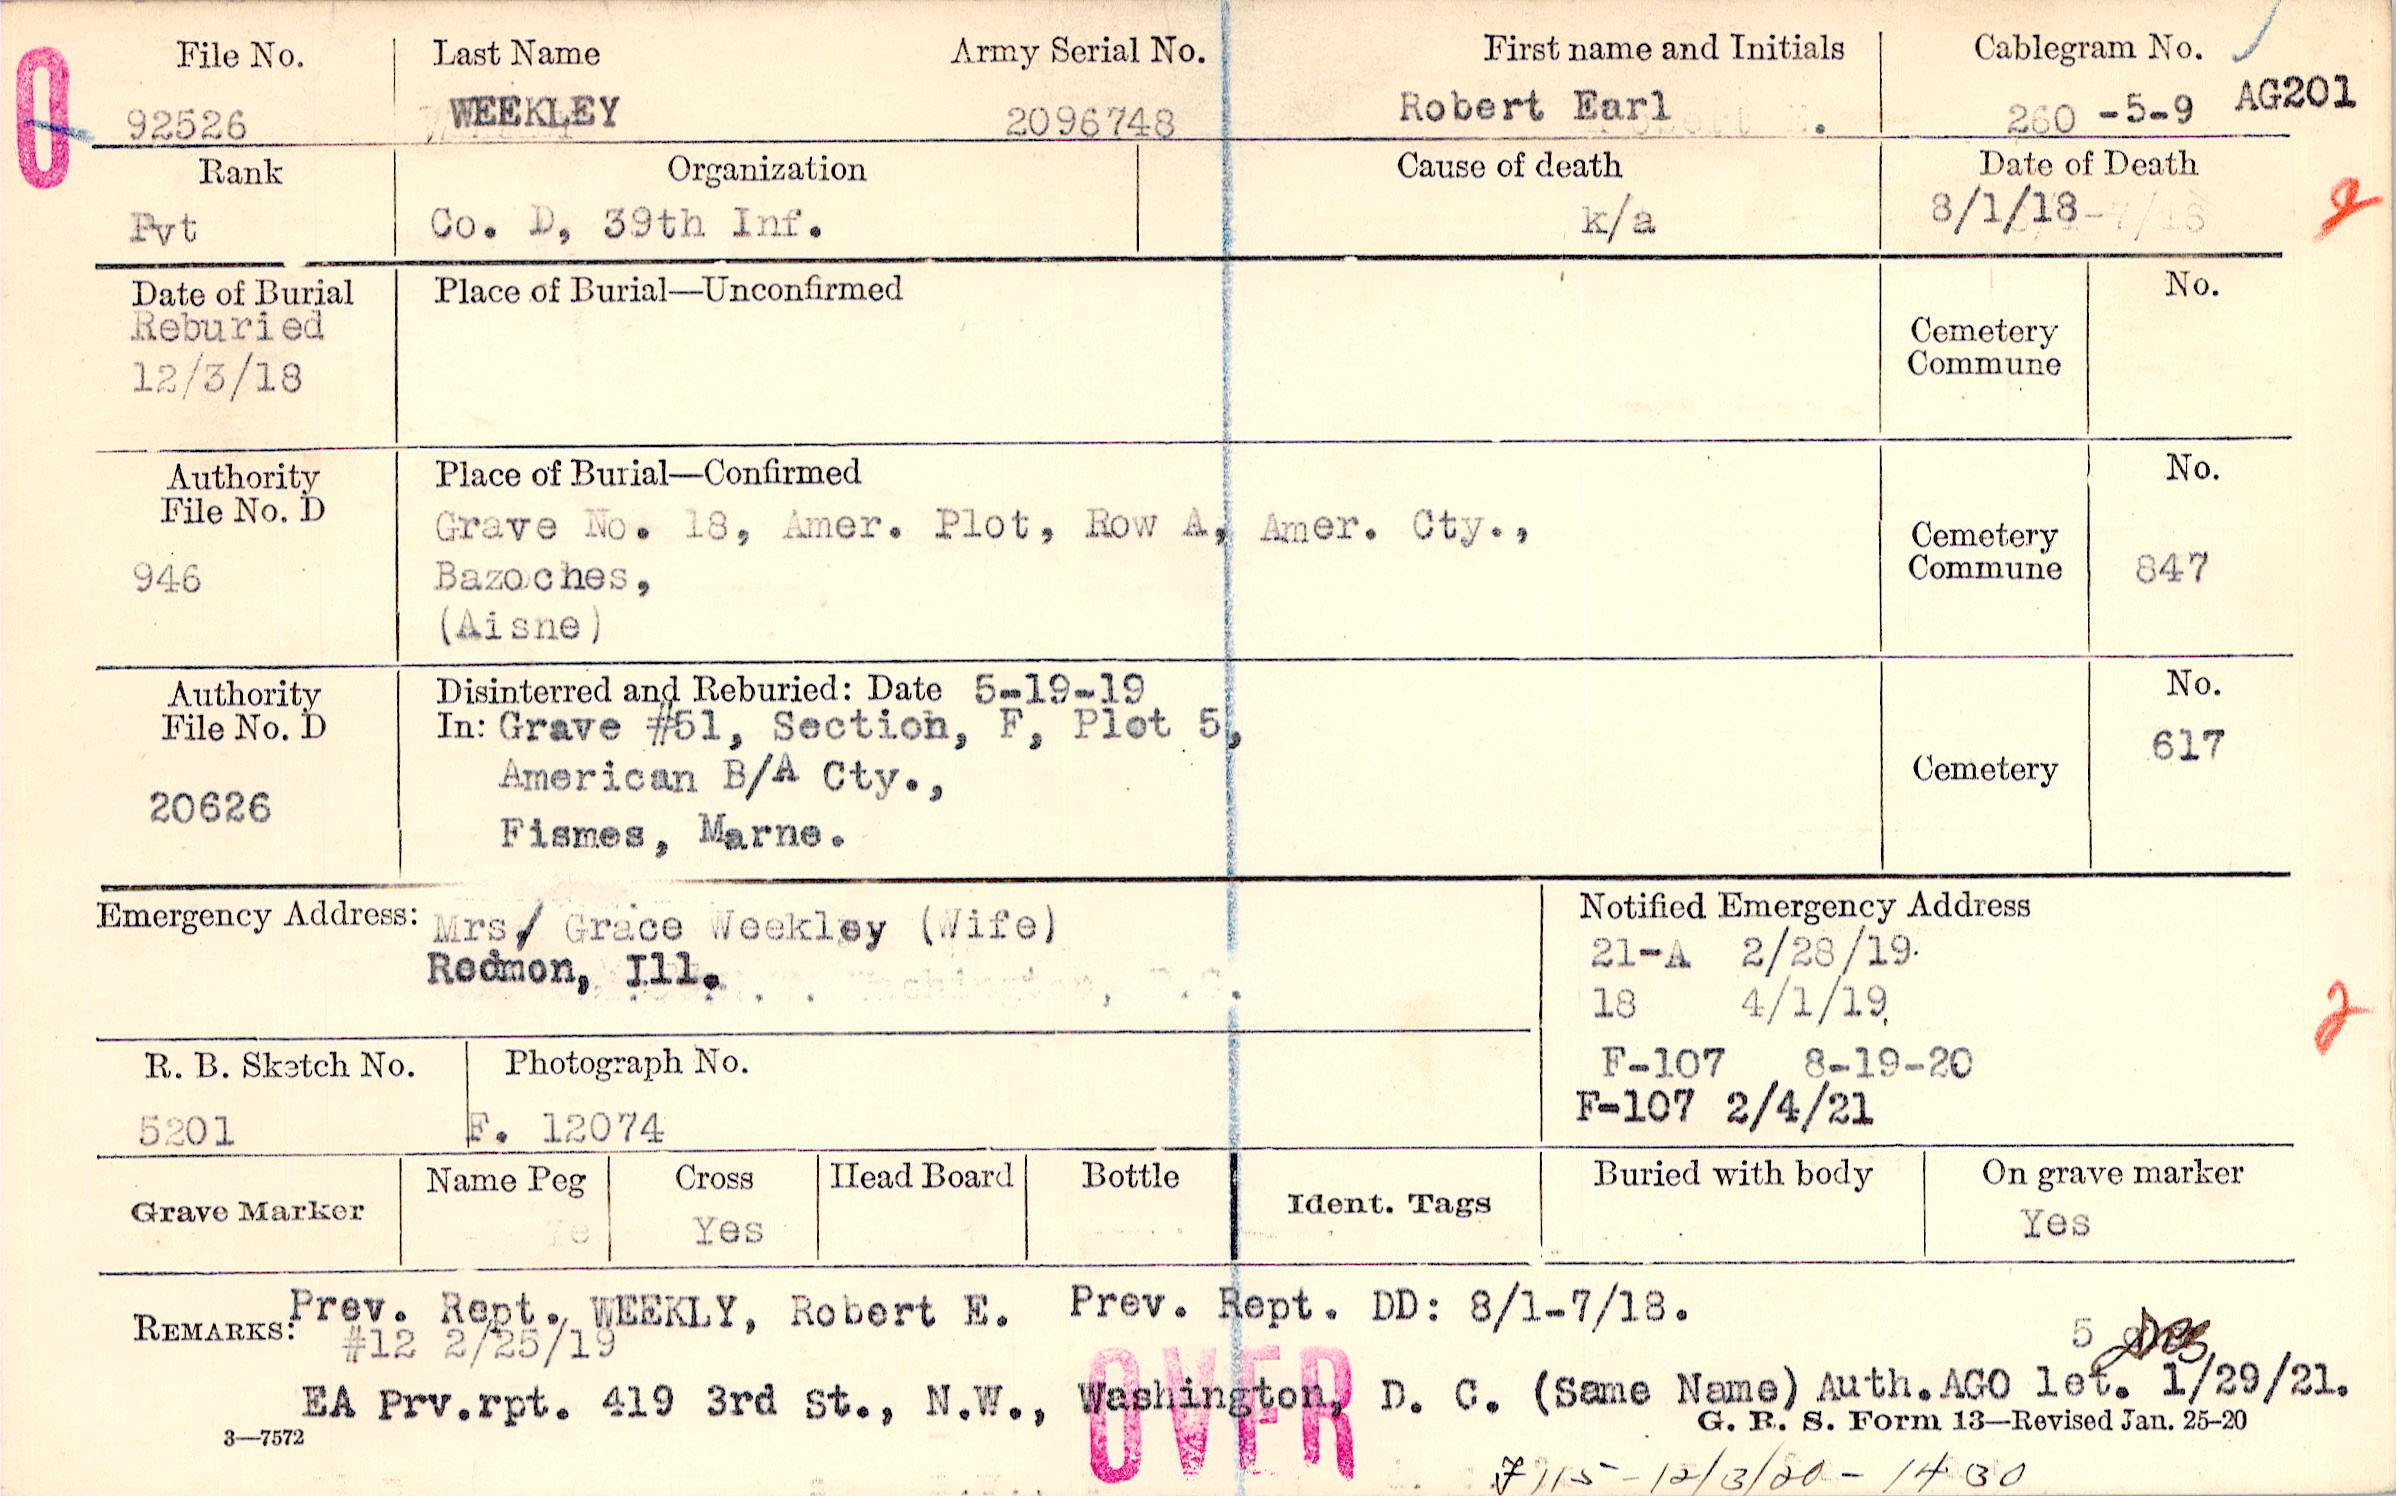 0
File No. Last Name Army Serial No. First name and Initials Cablegram No.
92526 WEEKLEY 2096748 Robert Earl 260 -5-9 AG201
Rank Organization Cause of death Date of Death
Pvt Co. D, 39th Inf. k/a 8/1/18
Date of Burial Place of Burial—Unconfirmed No.
Reburied
12/3/18
Cemetery
Commune
Authority Place of Burial—Confirmed No.
File No. D
Grave No. 18, Amer. Plot, Row A, Amer. Cty.,
946 Bazoches,
(Aisne)
Cemetery
Commune 847
Authority Disinterred and Reburied: Date 5-19-19 No.
File No. D In: Grave #51, Section, F, Plot 5,
American B/A Cty., Cemetery 617
20626 Fismes, Marne.
Emergency Address: Mrs/ Grace Weekley (Wife)
Redmon, Ill.
Notified Emergency Address
21-A 2/28/19.
18 4/1/19.
F-107 8-19-20
F-107 2/4/21
2
R. B. Sketch No. Photograph No.
5201 F. 12074
Grave Marker Name Peg Cross Head Board Bottle Ident. Tags Buried with body On grave marker
Yes Yes
REMARKS: Prev. Rept. WEEKLY, Robert E. Prev. Rept. DD: 8/1-7/18.
#12 2/25/19 5
EA Prv.rpt. 419 3rd st., N.W., Washington, D. C. (Same Name) Auth. AGO let. 1/29/21.
OVER
3—7572 G. R. S. Form 13—Revised Jan. 25-20
F115 - 12/3/20 - 1430